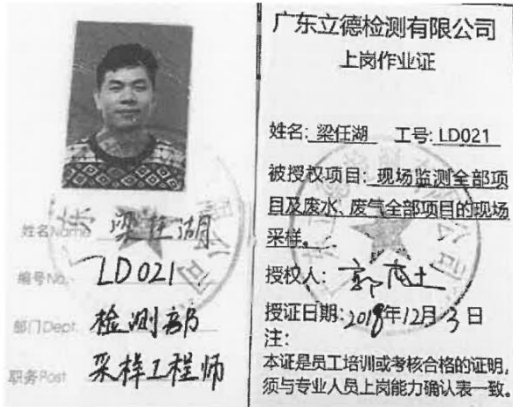 姓名Name 梁任湖
编号No. LD021
部门Dept. 检测部
职务Post 采样工程师
广东立德检测有限公司
上岗作业证
姓名: 梁任湖 工号: LD021
被授权项目: 现场监测全部项
目及废水、废气全部项目的现场
采样。
授权人:
授证日期: 2018年12月3日
注:
本证是员工培训或考核合格的证明,
须与专业人员上岗能力确认表一致。